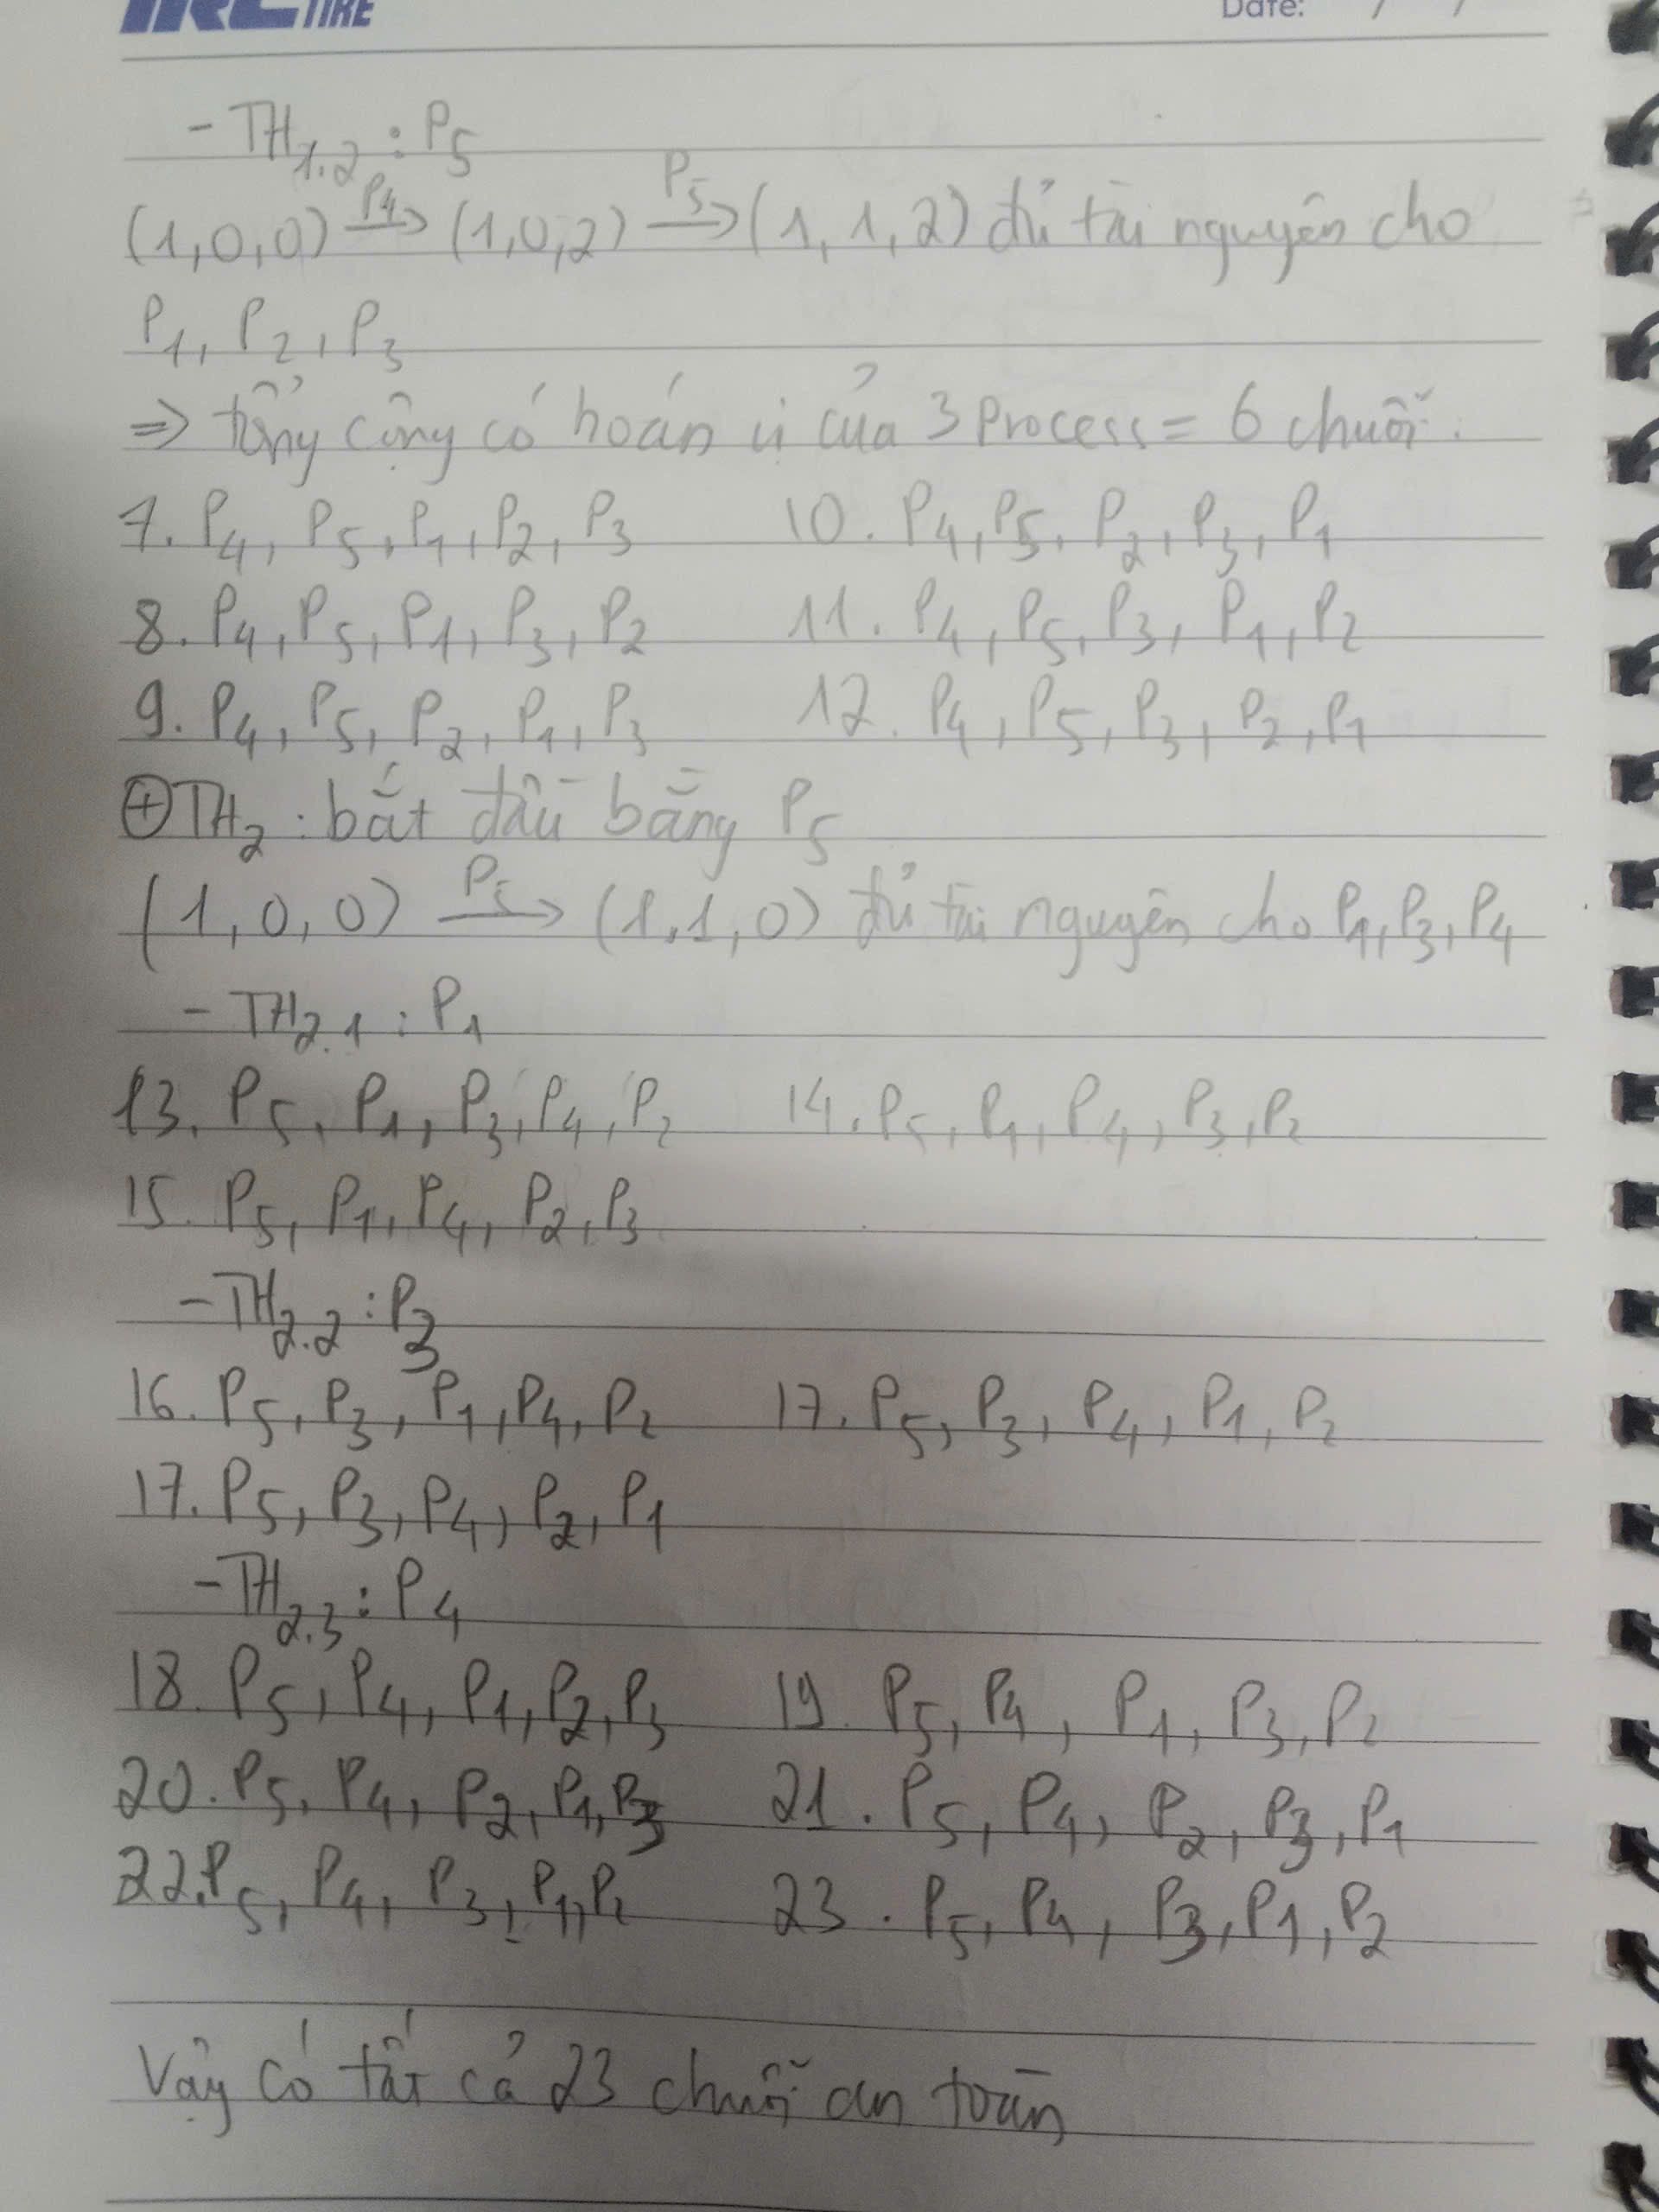 IRC TIRE Date: / /
- TH1.2 : P5
(1,0,0) P4→ (1,0,2) P5→ (1,1,2) đủ tài nguyên cho
P1, P2, P3
=> tổng cộng có hoán vị của 3 Process = 6 chuỗi.
7. P4, P5, P1, P2, P3 10. P4, P5, P2, P3, P1
8. P4, P5, P1, P3, P2 11. P4, P5, P3, P1, P2
9. P4, P5, P2, P1, P3 12. P4, P5, P3, P2, P1
⊕ TH2 : bắt đầu bằng P5
(1,0,0) P5→ (1,1,0) đủ tài nguyên cho P1, P3, P4
- TH2.1 : P1
13. P5, P1, P3, P4, P2 14. P5, P1, P4, P3, P2
15. P5, P1, P4, P2, P3
- TH2.2 : P3
16. P5, P3, P1, P4, P2 17. P5, P3, P4, P1, P2
17. P5, P3, P4, P2, P1
- TH2.3 : P4
18. P5, P4, P1, P2, P3 19. P5, P4, P1, P3, P2
20. P5, P4, P2, P1, P3 21. P5, P4, P2, P3, P1
22. P5, P4, P3, P1, P2 23. P5, P4, P3, P1, P2
Vậy có tất cả 23 chuỗi an toàn